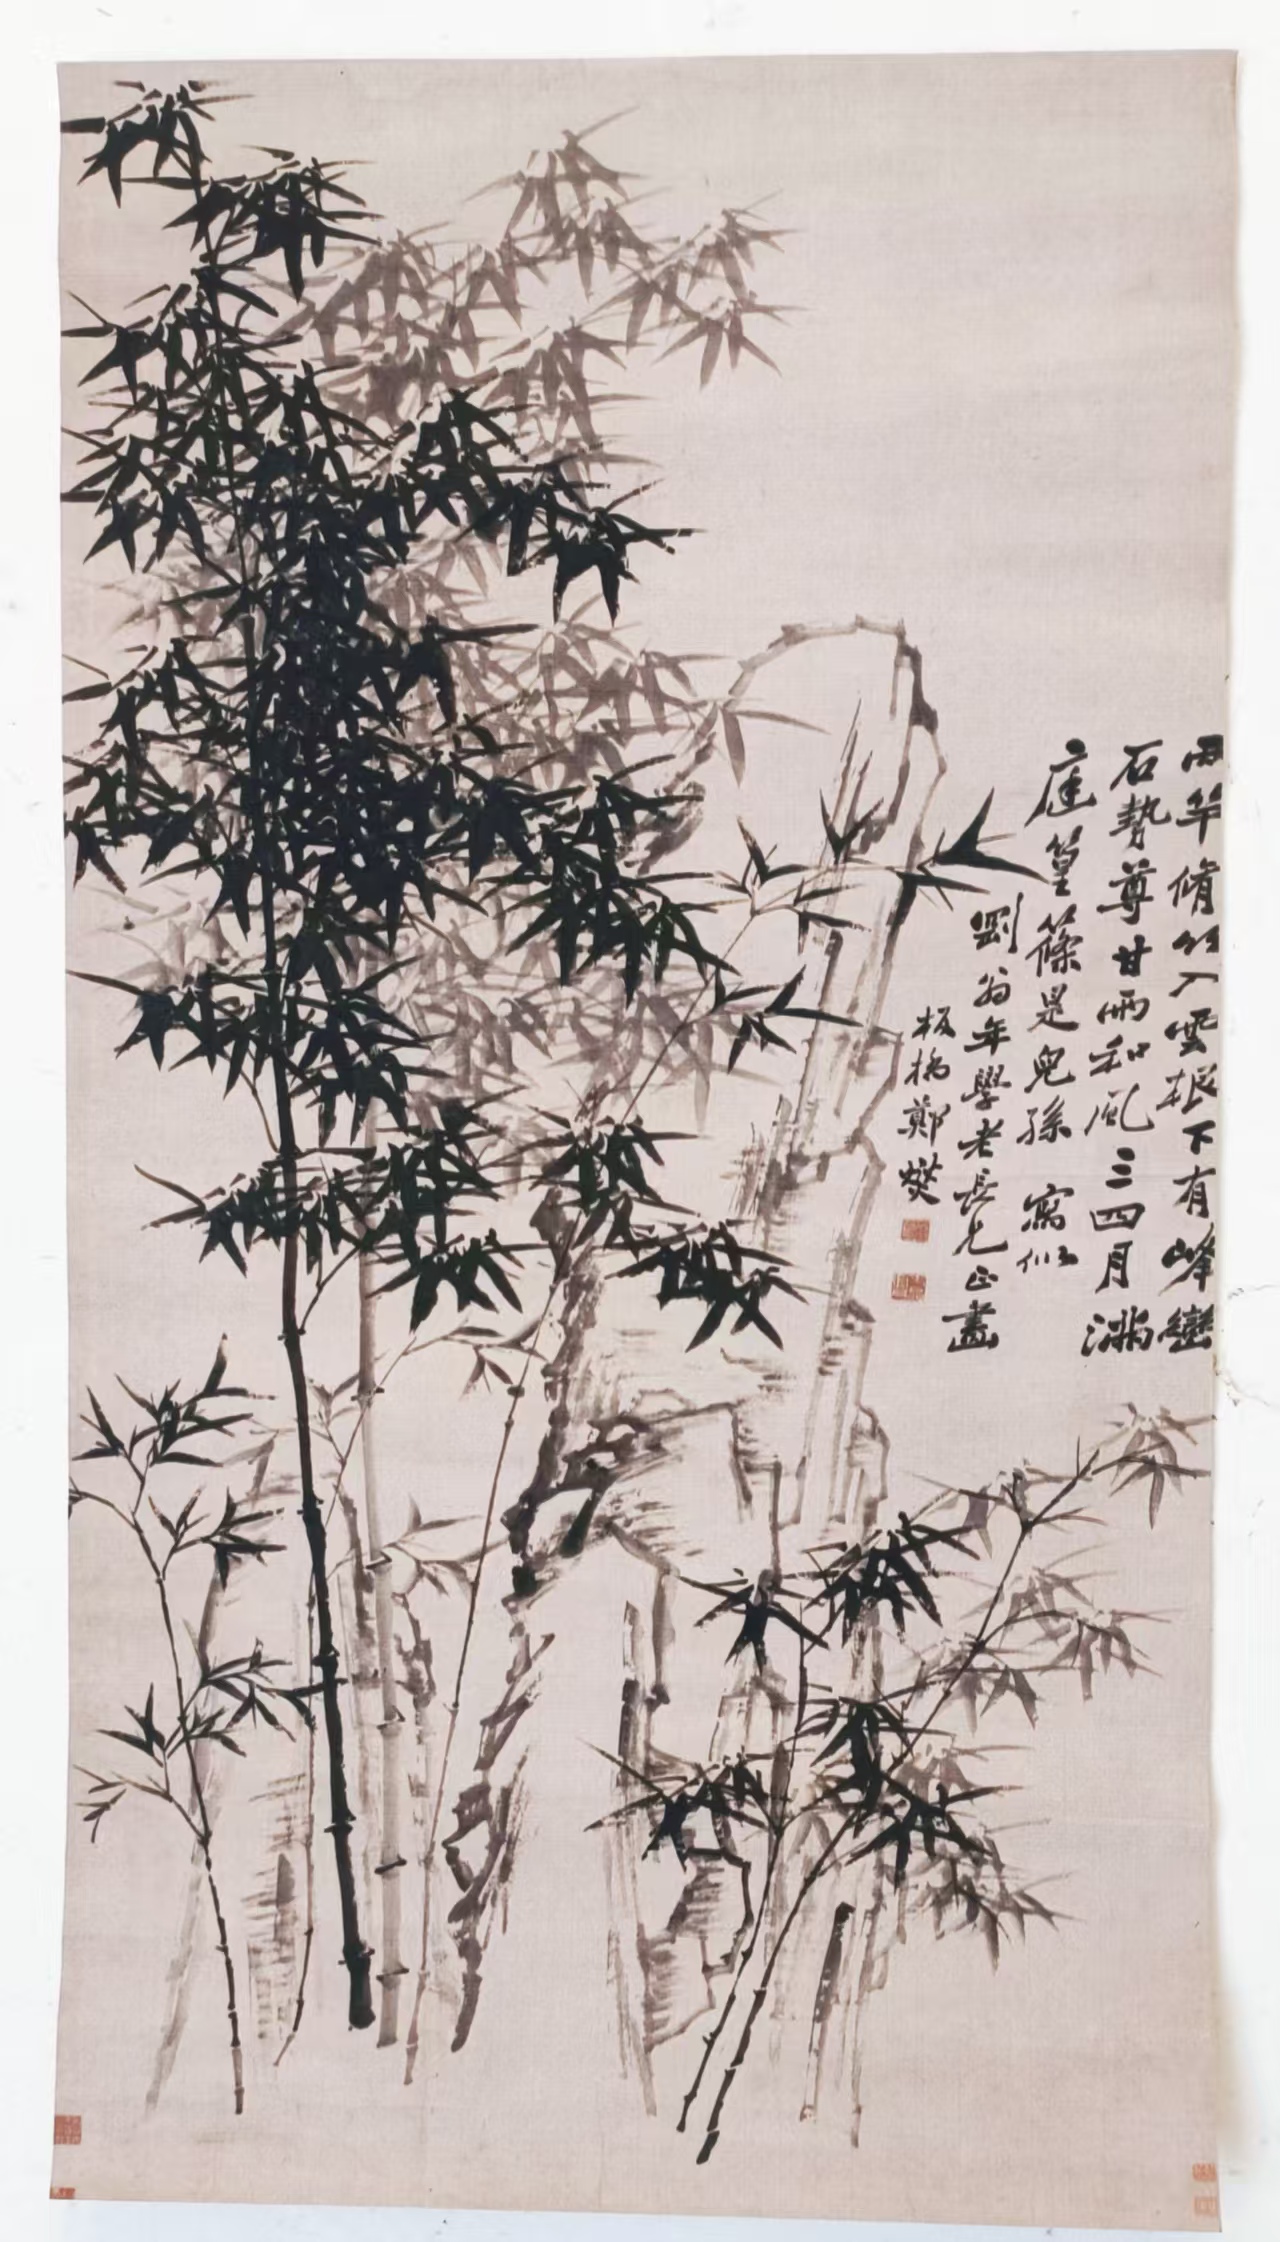 両竿修竹入雲根下有峰巒
石勢尊甘雨和風三四月満
庭篁篠是兒孫 寫似
劉翁年學老長兄正畫
板橋鄭燮